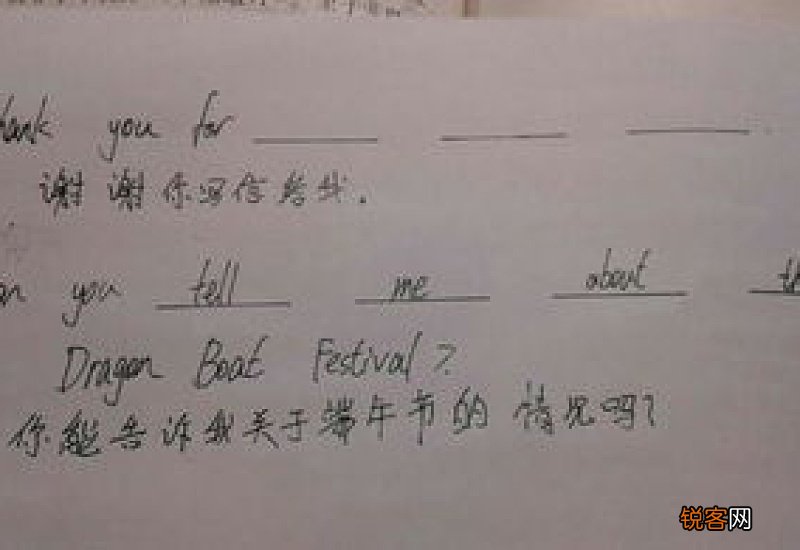 hank you for
谢谢你写信给我.
an you tell me about th
Dragon Boat Festival?
你能告诉我关于端午节的情况吗?
锐客网